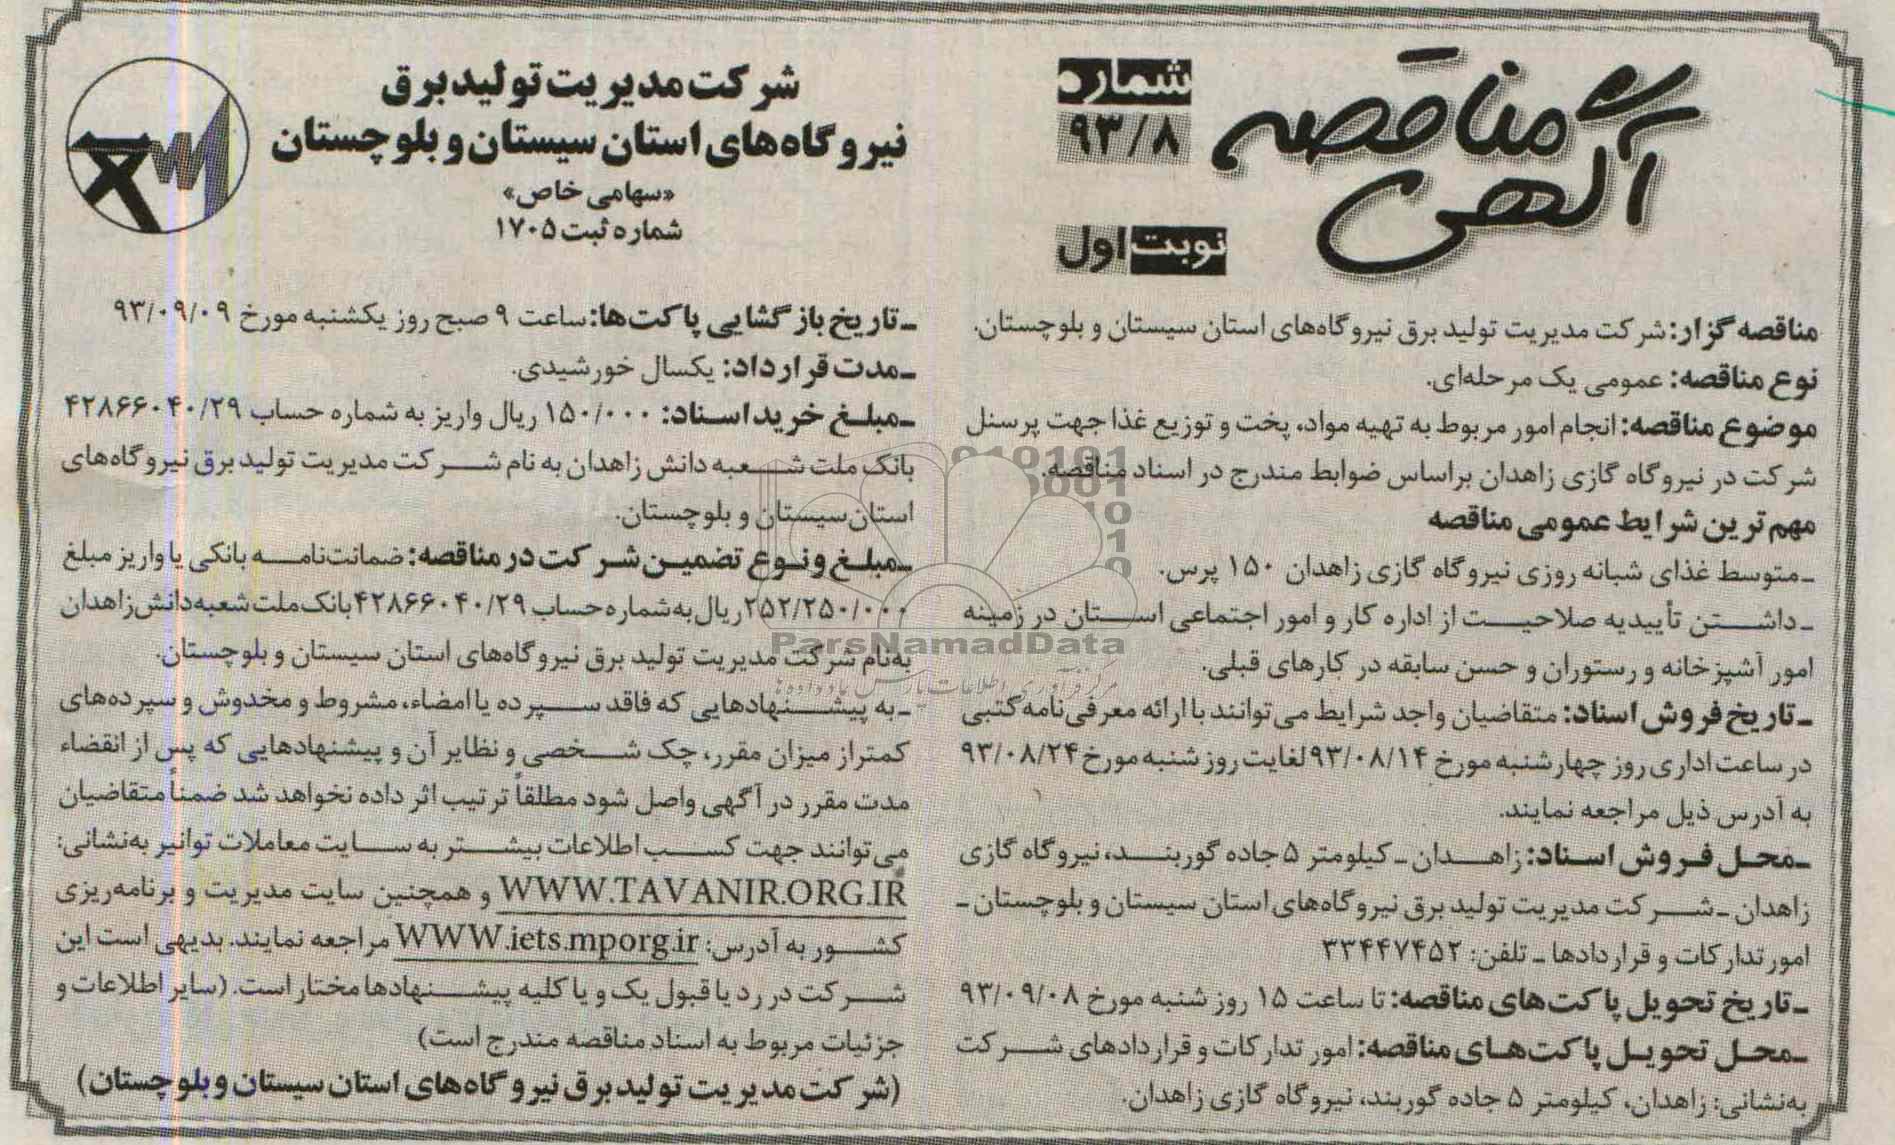 آگهی مناقصه
شماره
۹۳/۸
نوبت اول
شرکت مدیریت تولید برق
نیروگاه‌های استان سیستان و بلوچستان
«سهامی خاص»
شماره ثبت ۱۷۰۵
مناقصه گزار: شرکت مدیریت تولید برق نیروگاه‌های استان سیستان و بلوچستان.
نوع مناقصه: عمومی یک مرحله‌ای.
موضوع مناقصه: انجام امور مربوط به تهیه مواد، پخت و توزیع غذا جهت پرسنل
شرکت در نیروگاه گازی زاهدان براساس ضوابط مندرج در اسناد مناقصه.
مهم ترین شرایط عمومی مناقصه
ـ متوسط غذای شبانه روزی نیروگاه گازی زاهدان ۱۵۰ پرس.
ـ داشتن تأییدیه صلاحیت از اداره کار و امور اجتماعی استان در زمینه
امور آشپزخانه و رستوران و حسن سابقه در کارهای قبلی.
ـ تاریخ فروش اسناد: متقاضیان واجد شرایط می‌توانند با ارائه معرفی‌نامه کتبی
در ساعت اداری روز چهارشنبه مورخ ۹۳/۰۸/۱۴ لغایت روز شنبه مورخ ۹۳/۰۸/۲۴
به آدرس ذیل مراجعه نمایند.
ـ محل فروش اسناد: زاهدان ـ کیلومتر ۵ جاده گوربند، نیروگاه گازی
زاهدان ـ شرکت مدیریت تولید برق نیروگاه‌های استان سیستان و بلوچستان ـ
امور تدارکات و قراردادها ـ تلفن: ۳۳۴۴۷۴۵۲
ـ تاریخ تحویل پاکت‌های مناقصه: تا ساعت ۱۵ روز شنبه مورخ ۹۳/۰۹/۰۸
ـ محل تحویل پاکت‌های مناقصه: امور تدارکات و قراردادهای شرکت
به‌نشانی: زاهدان، کیلومتر ۵ جاده گوربند، نیروگاه گازی زاهدان.
ـ تاریخ بازگشایی پاکت‌ها: ساعت ۹ صبح روز یکشنبه مورخ ۹۳/۰۹/۰۹
ـ مدت قرارداد: یکسال خورشیدی.
ـ مبلغ خرید اسناد: ۱۵۰/۰۰۰ ریال واریز به شماره حساب ۴۲۸۶۶۰۴۰/۲۹
بانک ملت شعبه دانش زاهدان به نام شرکت مدیریت تولید برق نیروگاه‌های
استان سیستان و بلوچستان.
ـ مبلغ و نوع تضمین شرکت در مناقصه: ضمانت‌نامه بانکی یا واریز مبلغ
۲۵۲/۲۵۰/۰۰۰ ریال به شماره حساب ۴۲۸۶۶۰۴۰/۲۹ بانک ملت شعبه دانش زاهدان
به‌نام شرکت مدیریت تولید برق نیروگاه‌های استان سیستان و بلوچستان.
ـ به پیشنهادهایی که فاقد سپرده یا امضاء، مشروط و مخدوش و سپرده‌های
کمتر از میزان مقرر، چک شخصی و نظایر آن و پیشنهادهایی که پس از انقضاء
مدت مقرر در آگهی واصل شود مطلقاً ترتیب اثر داده نخواهد شد ضمناً متقاضیان
می‌توانند جهت کسب اطلاعات بیشتر به سایت معاملات توانیر به‌نشانی:
WWW.TAVANIR.ORG.IR و همچنین سایت مدیریت و برنامه‌ریزی
کشور به آدرس: WWW.iets.mporg.ir مراجعه نمایند. بدیهی است این
شرکت در رد یا قبول یک و یا کلیه پیشنهادها مختار است. (سایر اطلاعات و
جزئیات مربوط به اسناد مناقصه مندرج است)
(شرکت مدیریت تولید برق نیروگاه‌های استان سیستان و بلوچستان)
ParsNamadData
مرکز فرآوری اطلاعات پارس نماد داده‌ها